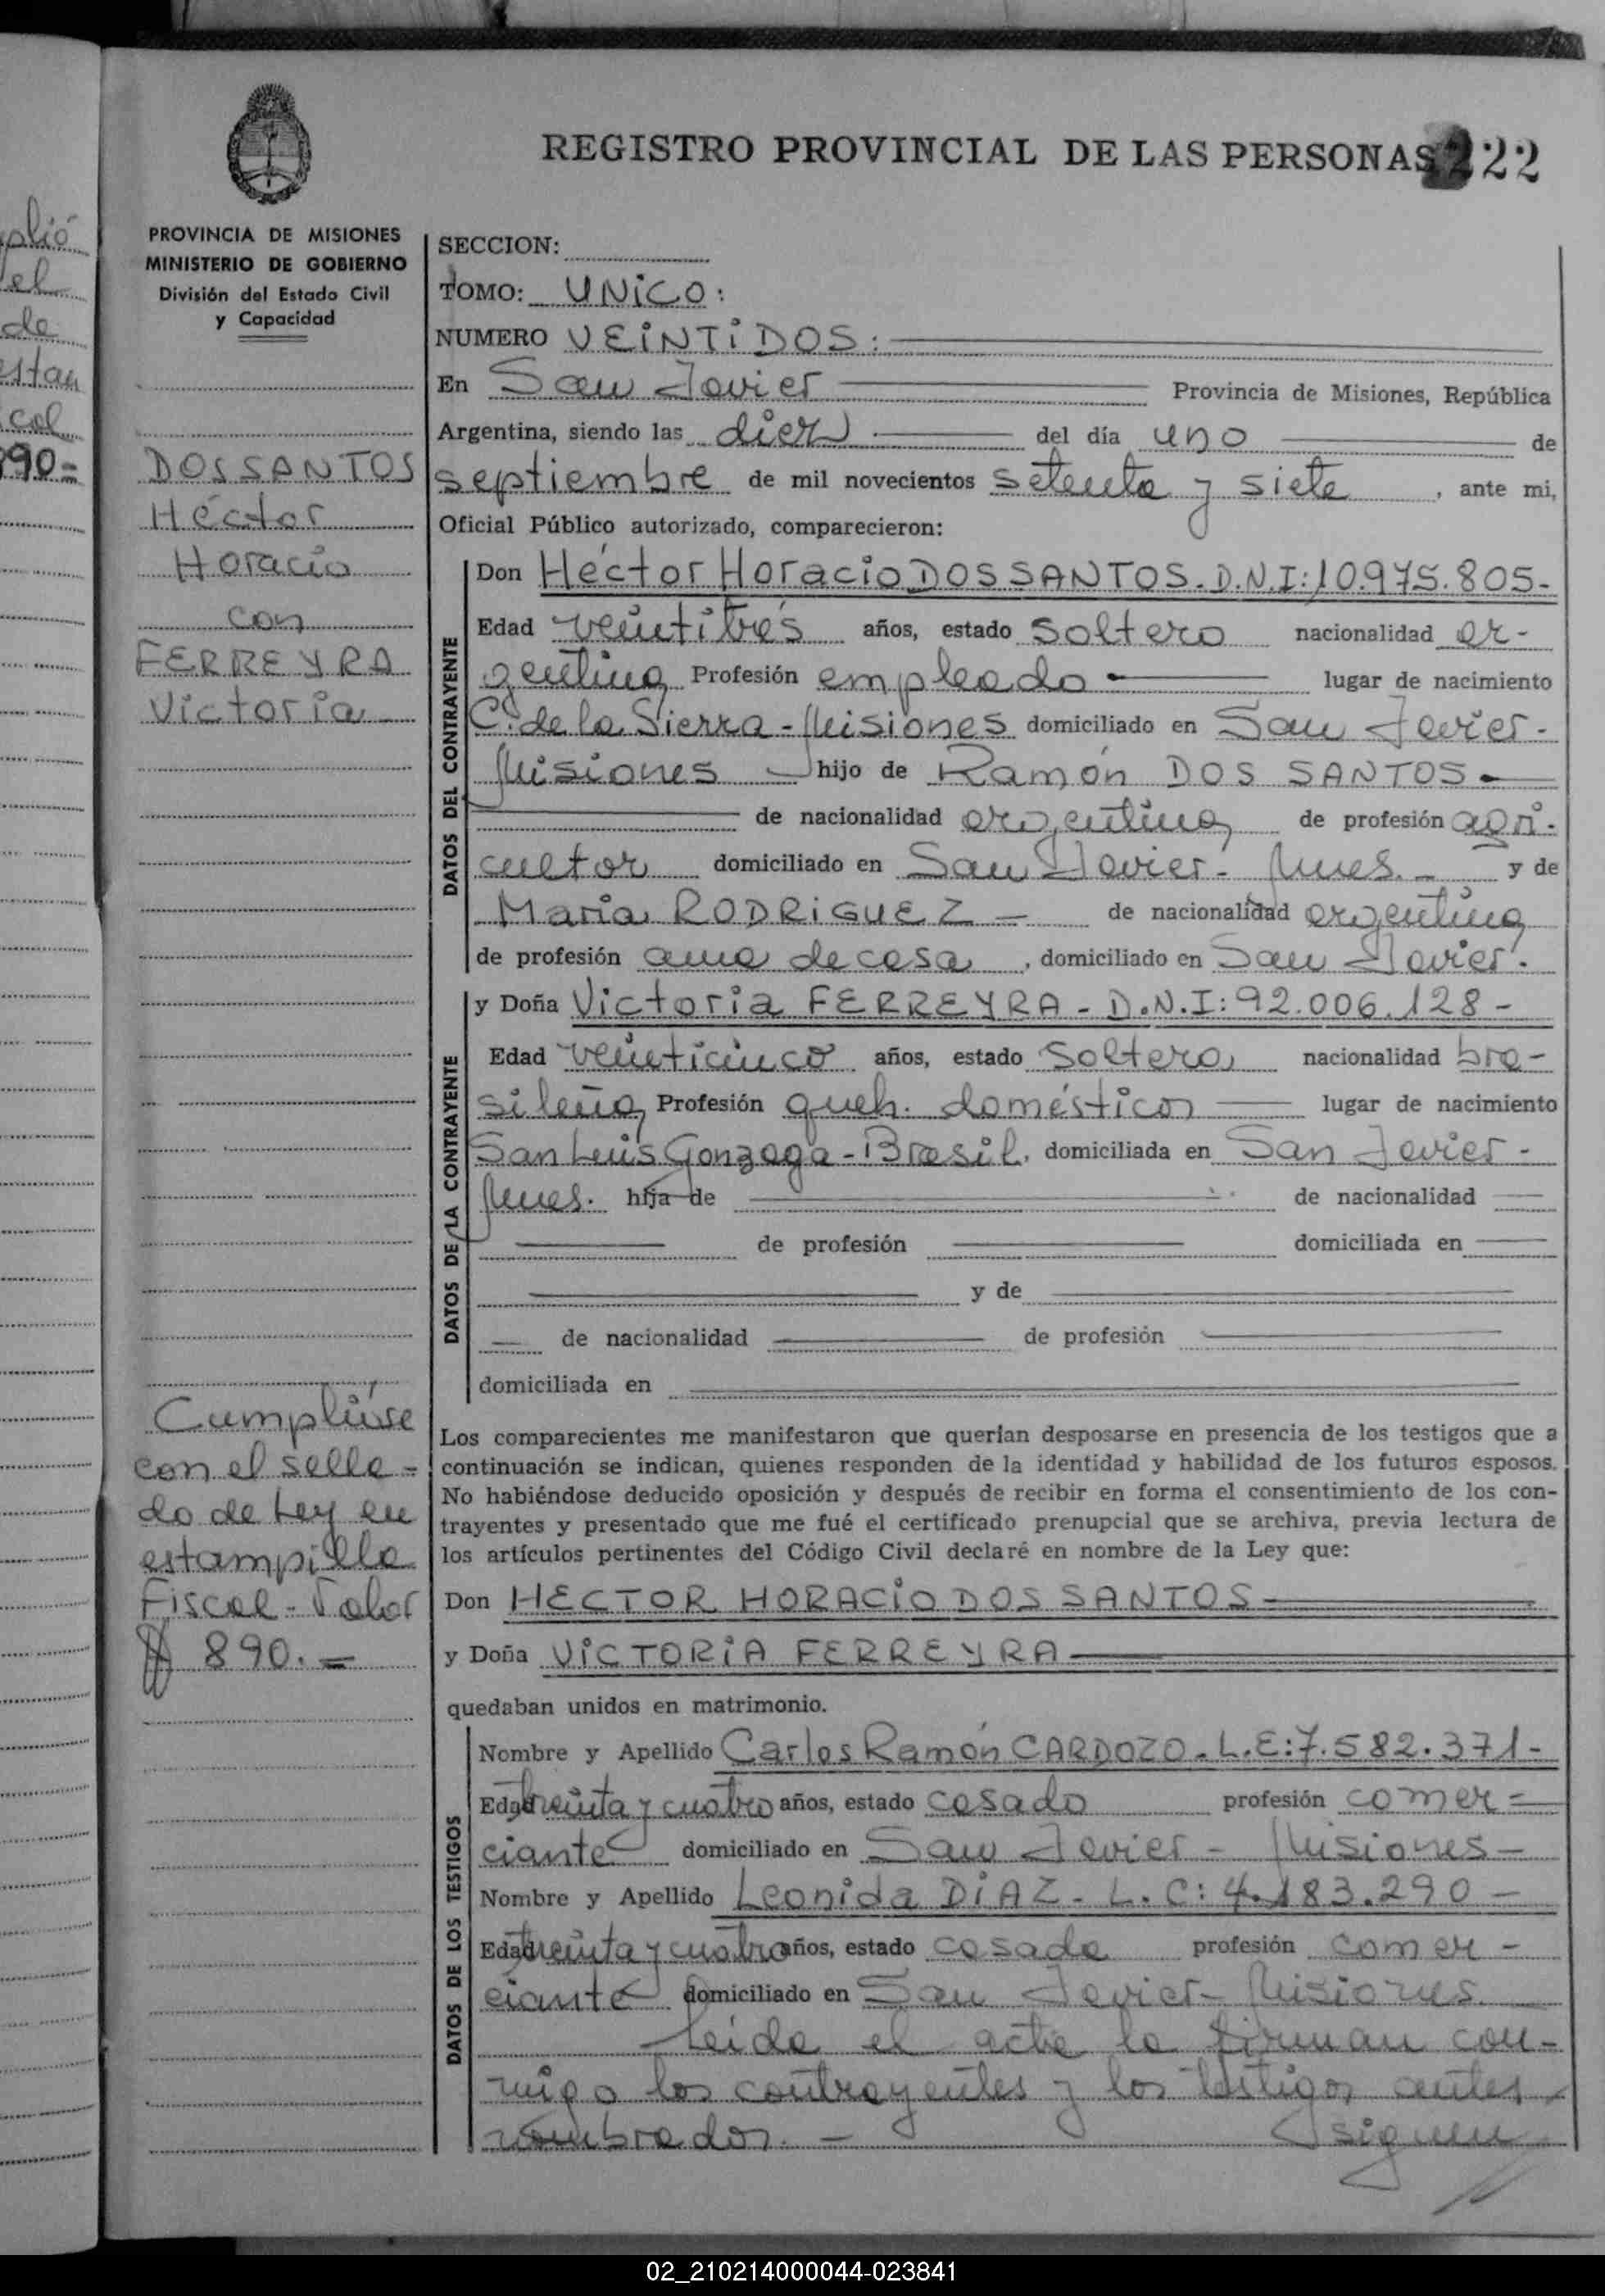 plió
el
de
estam
cal
890=
REGISTRO PROVINCIAL DE LAS PERSONAS 222
PROVINCIA DE MISIONES
MINISTERIO DE GOBIERNO
División del Estado Civil
y Capacidad
DOS SANTOS
Héctor
Horacio
con
FERREYRA
Victoria
Cumplióse
con el sella-
do de Ley en
estampilla
Fiscal - Valor
$ 890. =
SECCION:
TOMO: UNICO:
NUMERO VEINTIDOS:
En San Javier Provincia de Misiones, República
Argentina, siendo las diez del día uno de
septiembre de mil novecientos setenta y siete, ante mi,
Oficial Público autorizado, comparecieron:
DATOS DEL CONTRAYENTE
Don Héctor Horacio DOS SANTOS. D.N.I: 10.975.805-
Edad veintitrés años, estado soltero nacionalidad ar-
gentina Profesión empleado lugar de nacimiento
C. de la Sierra - Misiones domiciliado en San Javier -
Misiones hijo de Ramón DOS SANTOS
de nacionalidad argentina de profesión agri-
cultor domiciliado en San Javier - Mnes. - y de
María RODRIGUEZ - de nacionalidad argentina
de profesión ama de casa, domiciliado en San Javier.
DATOS DE LA CONTRAYENTE
y Doña Victoria FERREYRA - D.N.I: 92.006.128 -
Edad veinticinco años, estado soltera nacionalidad bra-
sileña Profesión queh. domésticos lugar de nacimiento
San Luis Gonzaga - Brasil, domiciliada en San Javier -
Mnes. hija de de nacionalidad
de profesión domiciliada en
y de
de nacionalidad de profesión
domiciliada en
Los comparecientes me manifestaron que querían desposarse en presencia de los testigos que a
continuación se indican, quienes responden de la identidad y habilidad de los futuros esposos.
No habiéndose deducido oposición y después de recibir en forma el consentimiento de los con-
trayentes y presentado que me fué el certificado prenupcial que se archiva, previa lectura de
los artículos pertinentes del Código Civil declaré en nombre de la Ley que:
Don HECTOR HORACIO DOS SANTOS
y Doña VICTORIA FERREYRA
quedaban unidos en matrimonio.
DATOS DE LOS TESTIGOS
Nombre y Apellido Carlos Ramón CARDOZO. L.E: 7.582.371-
Edad treinta y cuatro años, estado casado profesión comer=
ciante domiciliado en San Javier - Misiones -
Nombre y Apellido Leonida DIAZ - L.C: 4.183.290 -
Edad treinta y cuatro años, estado casada profesión comer -
ciante domiciliado en San Javier - Misiones.
Leída el acta la firman con-
migo los contrayentes y los testigos antes
nombrados. - siguen
02_210214000044-023841